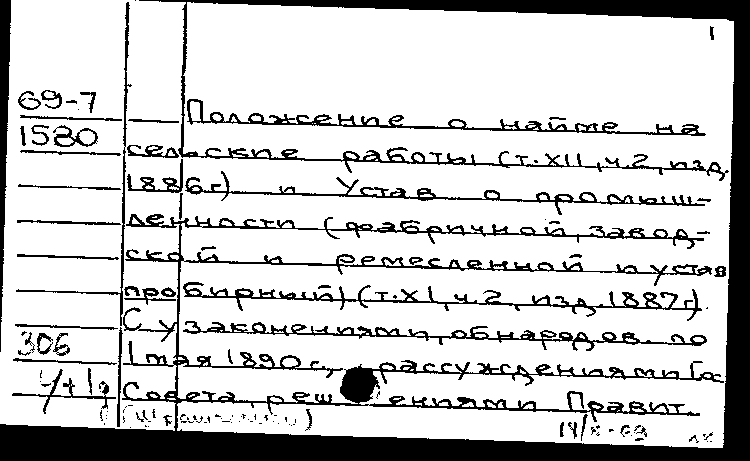 1
69-7
1580
Положение о найме на
сельские работы (т.XII, ч.2, изд.
1886г) и Устав о промыш-
ленности (фабричной, завод-
ской и ремесленной и устав
пробирный) (т.XI, ч.2, изд. 1887г).
С узаконениями, обнародов. по
306
1 мая 1890г., рассуждениями Гос
Совета, решениями Правит.
14/X-69